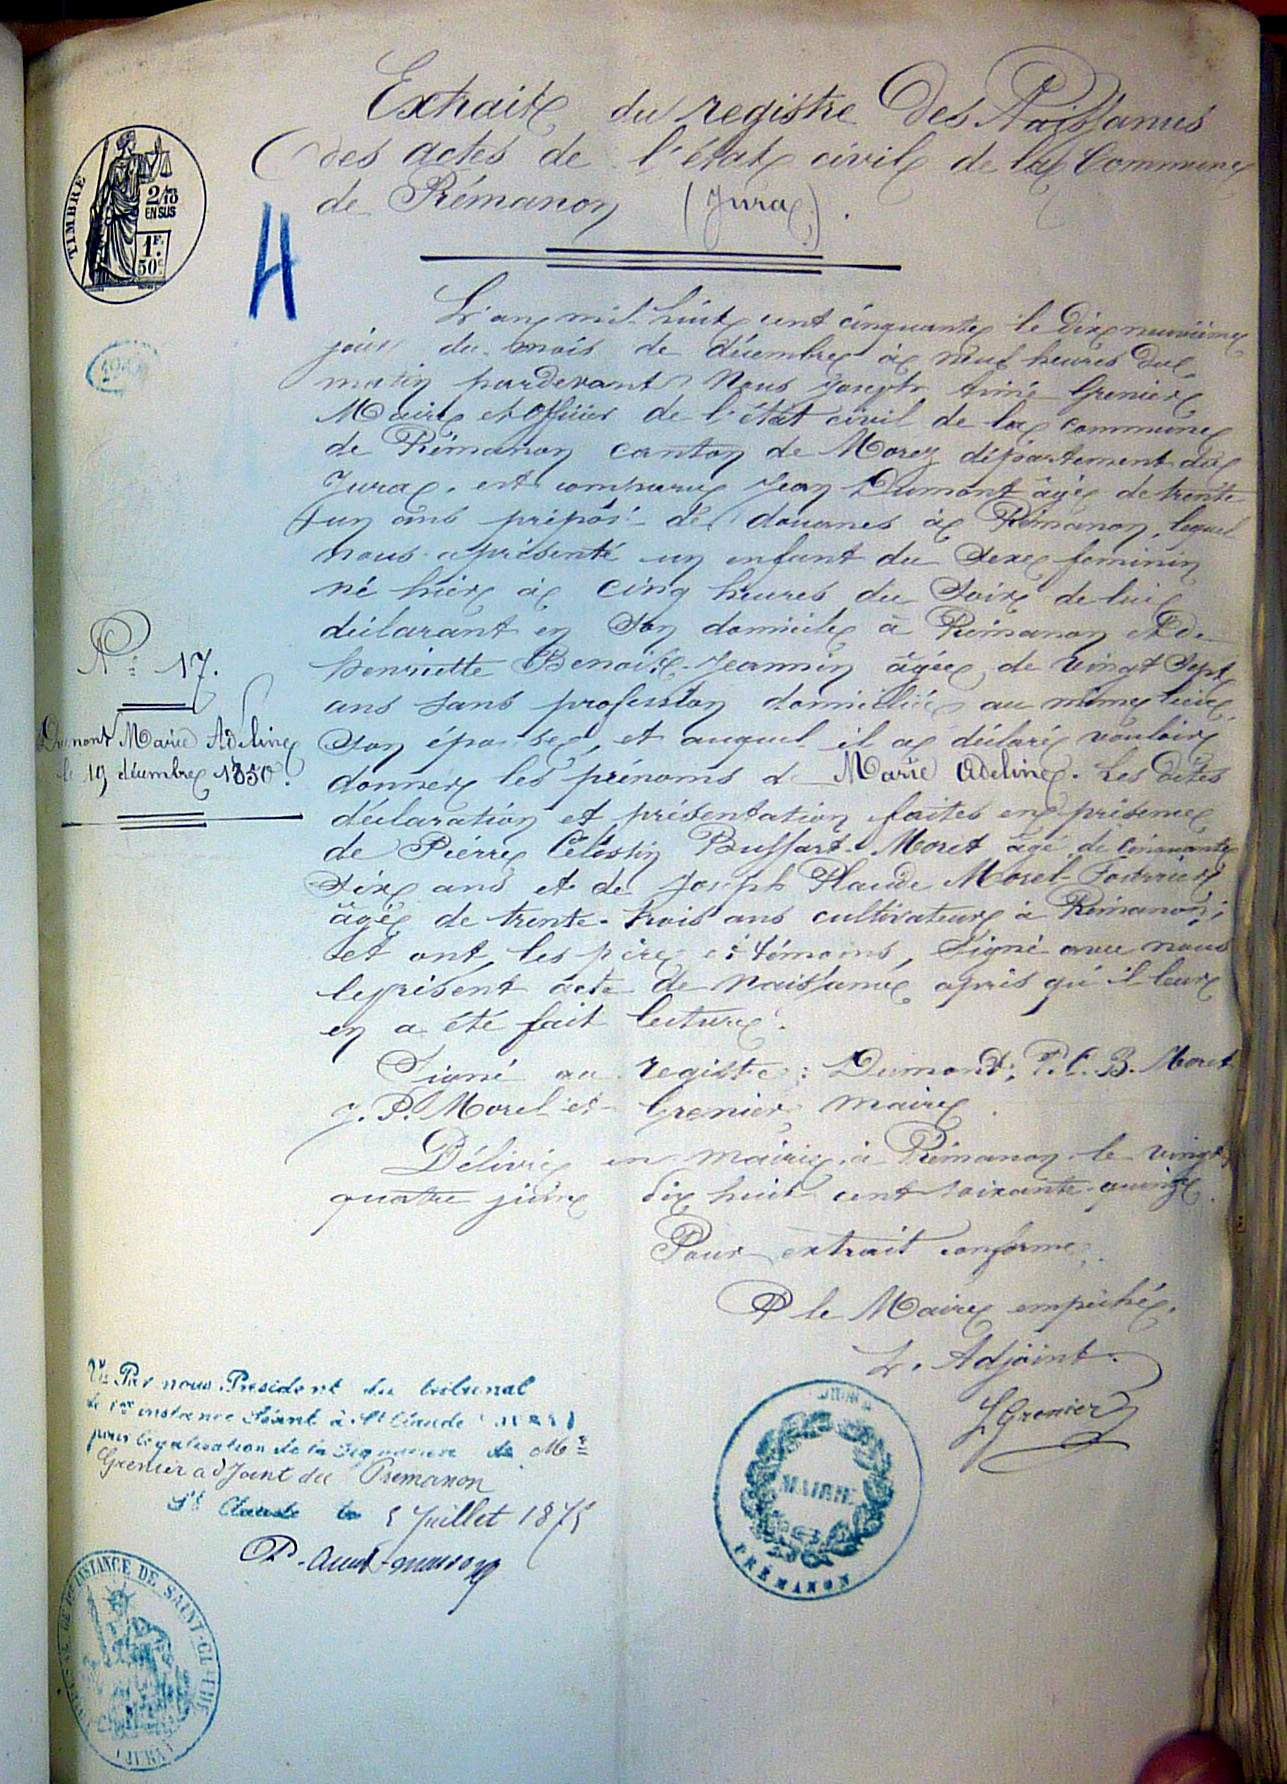 Extrait du registre Des Naissances
des actes de l'état civil de la Commune
de Prémanon (Jura).
TIMBRE
2/10
EN SUS
1F.
50c
H
L'an mil huit cent cinquante le Dix neuvième
jour du mois de décembre à neuf heures du
matin pardevant Nous Joseph Aimé Grenier
Maire et Officier de l'état civil de la commune
de Prémanon canton de Morez département du
Jura, est comparu Jean Dumont âgé de trente
un ans préposé des douanes à Prémanon, lequel
nous a présenté un enfant du Sexe feminin
né hier à cinq heures du Soir de lui
déclarant en Son domicile à Prémanon et de
Henriette Benoit-Jeannin âgée de vingt Sept
ans sans profession domiciliée au même lieu
Son épouse, et auquel il a déclaré vouloir
donner les prénoms de Marie Adeline. Les dites
déclaration et présentation faites en présence
de Pierre Célestin Buffart-Moret âgé de cinquante
Six ans et de Joseph Claude Morel
âgé de trente-trois ans cultivateurs à Prémanon;
et ont, les père et témoins, Signé avec nous
le présent acte de Naissance après qu'il leur
en a été fait lecture.
Signé au registre: Dumont; P. C. B. Moret
J. P. Morel et Grenier maire.
Délivré en mairie à Prémanon le vingt
quatre juin dix huit cent soixante-quinze.
Pour extrait conforme.
P le Maire empêché.
L. Adjoint.
LGrenier
N° 17.
Dumont Marie Adeline
le 19 décembre 1850.
Vu Par nous President du tribunal
de 1re instance Séant à St Claude (JURA)
pour légalisation de la signature de Mr
Grenier adjoint de Premanon
St Claude le 5 Juillet 1875
MAIRIE
PRÉMANON
INSTANCE DE SAINT-CLAUDE
(JURA)